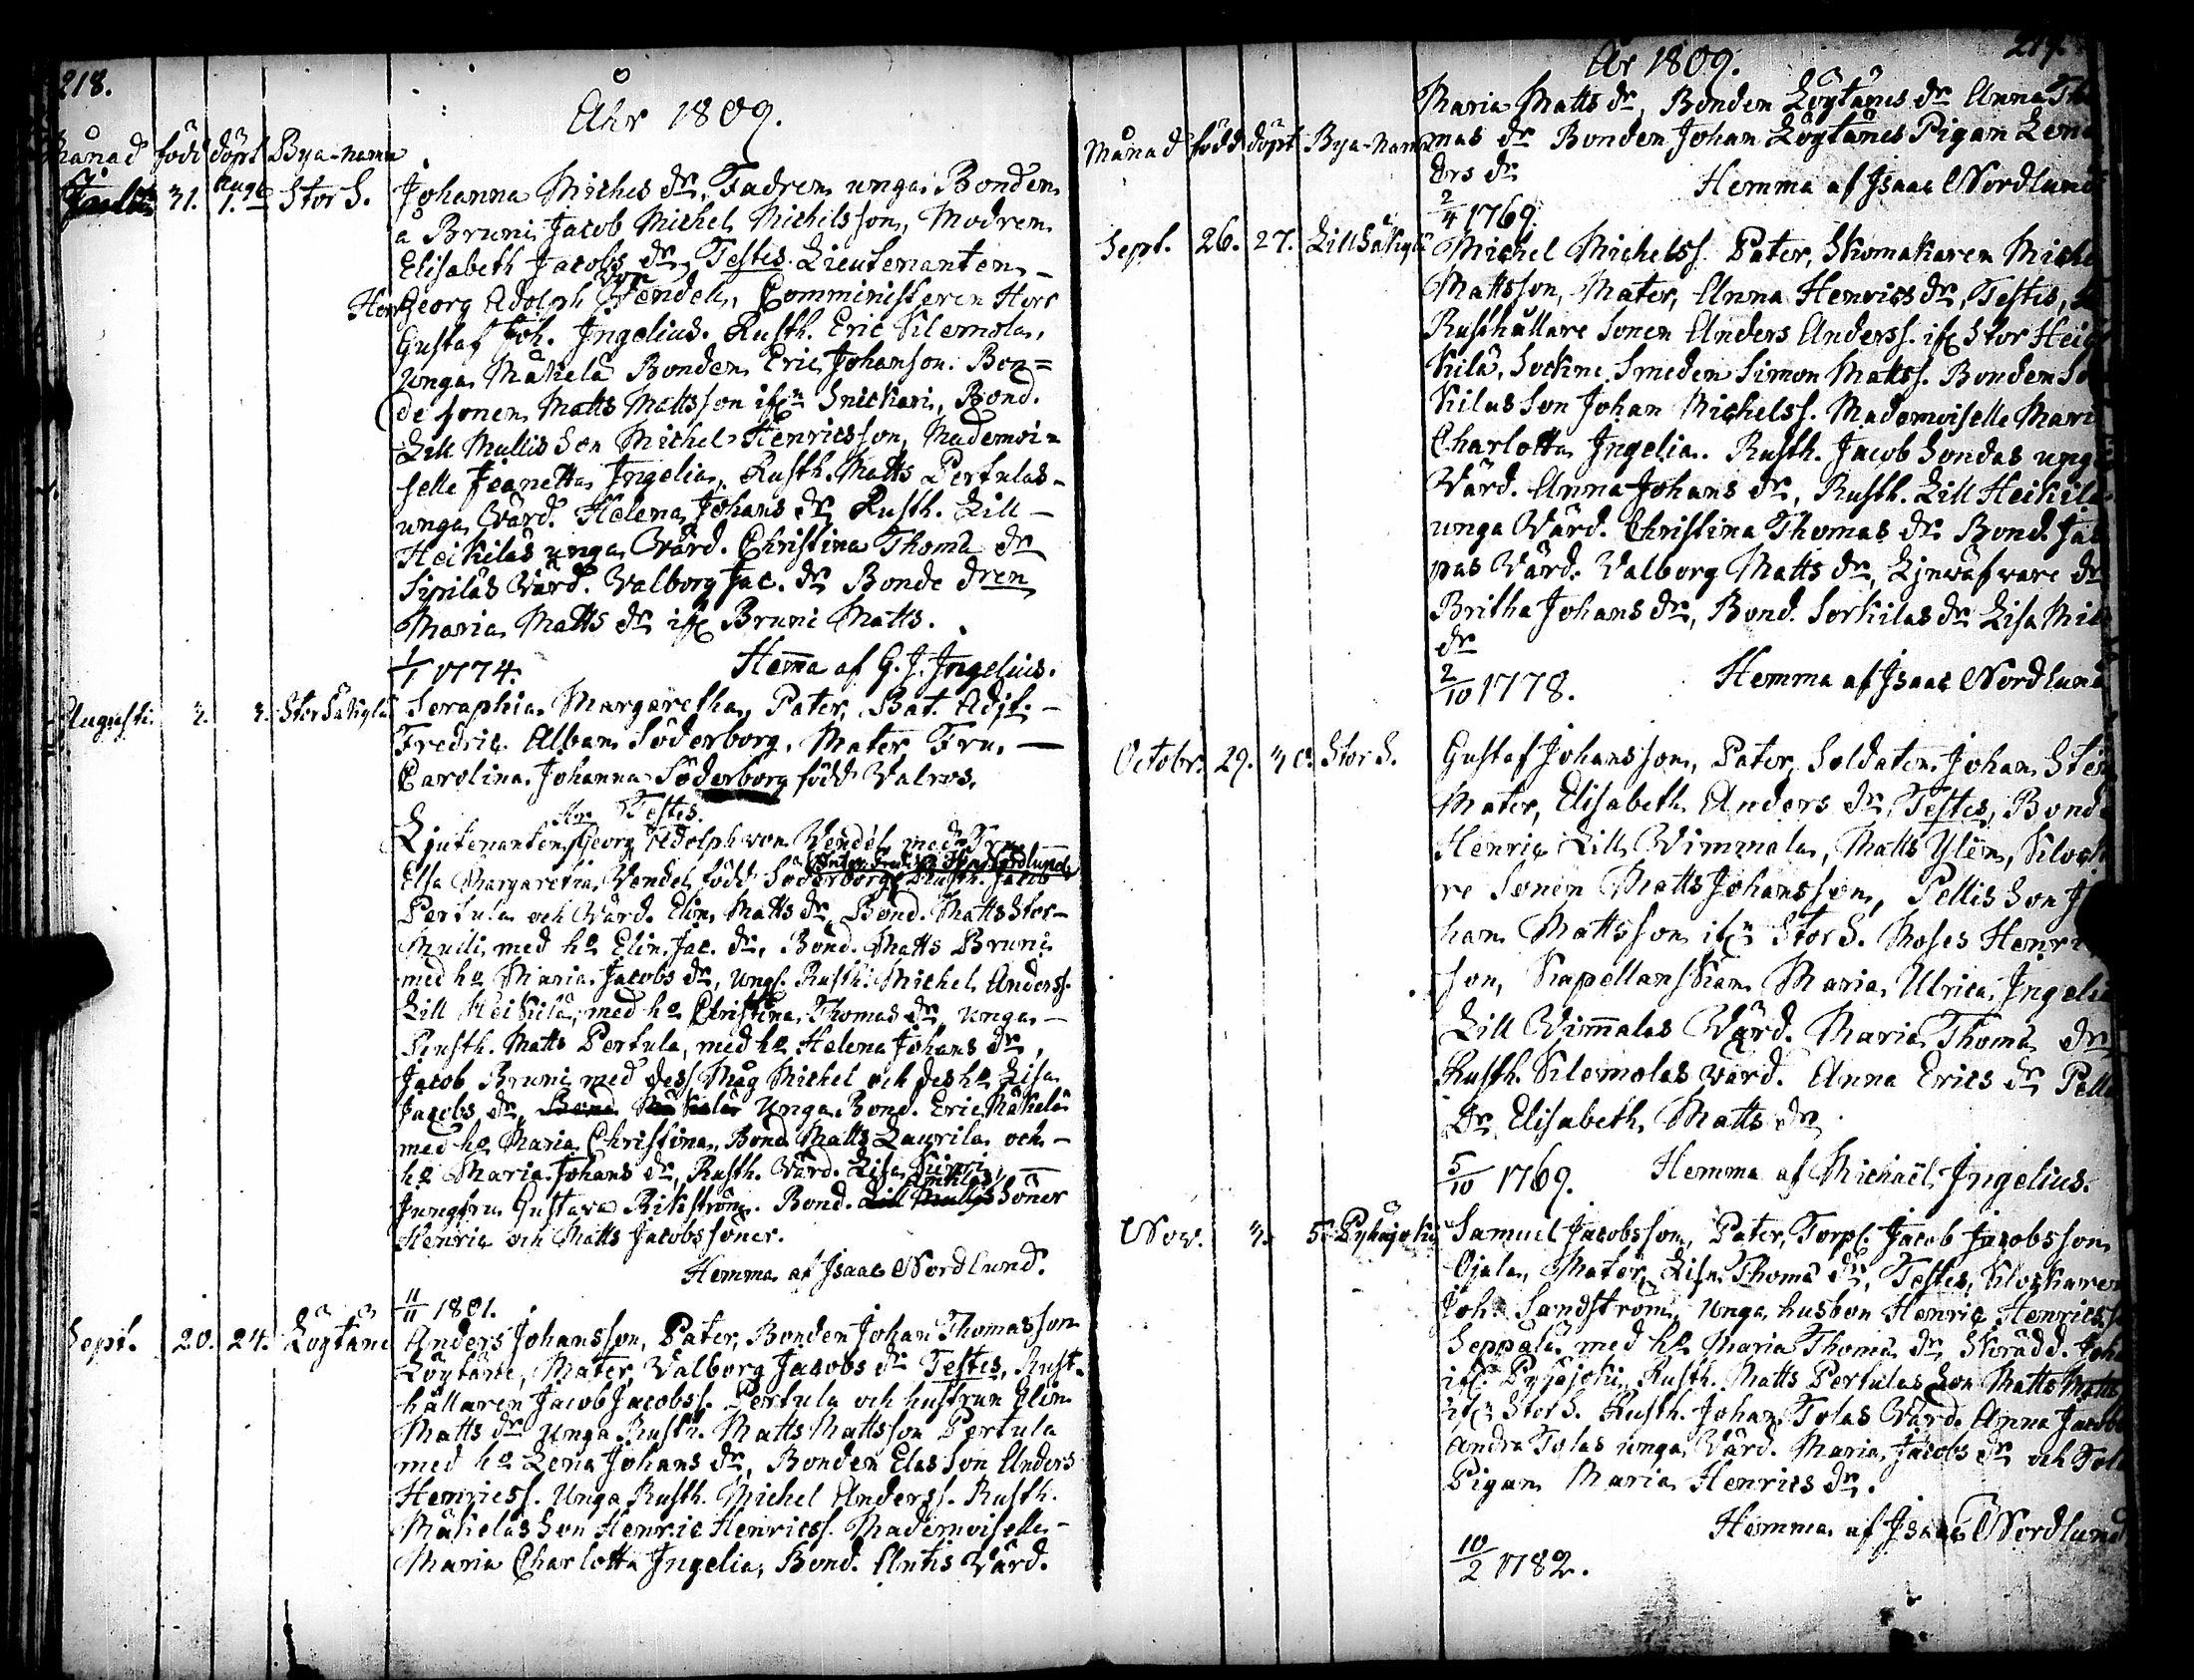 218.
Åhr 1809.
Månad född döpt Bya-namn
31. Aug. 1. Stor S. Johanna Michels dr, Fadren unga Bonden
å Bruni Jacob Michel Michelsson, Modren
Elisabeth Jacobs dr, Testes. Lieutenanten
Herr Georg Adolph von Vendel, Comministeren Herr
Gustaf Joh. Ingelius. Rusth. Eric Klemola,
unga Mäkelä Bonden Eric Johanson. Bon=
de sonen Matts Mattsson ifrn Snickari, Bond.
Lill Mullis Son Michel Henricsson, Mademoi=
selle Jeanetta Ingelia, Rusth. Matts Pertulas
unga Värd. Helena Johans dr Rusth. Lill
Heikiläs unga Värd. Christina Thoma dr
Sipiläs Värd. Valborg Jac. dr Bonde dren
Maria Matts dr ifr Bruni Matts.
1/1 1774. Hemma af G. J. Ingelius.
Augusti 2. 3. Stor Säkylä Seraphia Margaretha, Pater, Bat. Adjt.
Fredric Alban Söderborg, Mater Fru
Carolina Johanna Söderborg född Valros.
Testes.
Ljutenanten Hr Georg Adolph von Vendel med Fru
Elsa Margaretha Vendel född Söderborg Rusth. Jacob
Pertula och Värd. Elin Matts dr, Bond. Matts Stor
Mulli med ho Elin Jac. dr, Bond. Matts Bruni
med ho Maria Jacobs dr, ung. Rusth. Michel Anderss.
Lill Heikilä, med ho Christina Thomas dr, unga
Rusth. Matts Pertula, med ho Helena Johans dr,
Jacob Bruni med dess Måg Michel och des ho Lisa
Jacobs dr, Unga Bond. Eric Mäkelä
med ho Maria Christina, Bond. Matts Laurila och
ho Maria Johans dr, Rusth. Värd. Lisa
Jungfru Gustava Rikström. Bond. Söner
Henric och Matts Jacobs söner.
Hemma af Isaac Nordlund.
11/11 1801.
Sept. 20. 24. Löytäne Anders Johansson, Pater, Bonden Johan Thomasson
Löytäne, Mater, Valborg Jacobs dr Testes, Rust-
hållaren Jacob Jacobss. Pertula och hustrun Elin
Matts dr Unga Rusth. Matts Mattsson Pertula
med ho Lena Johans dr, Bonden Elas Son Anders
Henricss. Unga Rusth. Michel Anderss. Rusth.
Mäkeläs Son Henric Henricss. Mademoiselle
Maria Charlotta Ingelia, Bond. Antis Värd.
219.
År 1809.
Maria Matts dr, Bonden Löytänes dr Anna Tho
Månad född döpt Bya-namn mas dr Bonden Johan Löytänes Pigan Lena
drs dr Hemma af Isaac Nordlund
2/4 1769.
Sept. 26. 27. Lill Säkylä Michel Michelss. Pater, Skomakaren Michel
Mattsson, Mater, Anna Henrics dr, Testes,
Rusthållare Sonen Anders Anderss. ifr Stor Hei
kilä, Sockne Smeden Simon Matss. Bonden
kilas Son Johan Michelss. Mademoiselle Mari
Charlotta Ingelia. Rusth. Jacob Sondas unga
Värd. Anna Johans dr, Rusth. Lill Heikiläs
unga Värd. Christina Thomas dr Bond.
pas Värd. Valborg Matts dr, Linväfvare dr
Britha Johans dr, Bond. Sorkilas dr Lisa
dr
2/10 1778. Hemma af Isaac Nordlund
Octobr. 29. 30. Stor S. Gustaf Johansson, Pater, Soldaten Johan
Mater, Elisabeth Anders dr, Testes, Bond
Henric Lill Vimmala, Matts Ylén, Klocka
re Sonen Matts Johansson, Pellis Son Jo
han Mattsson ifrn Stor S. Moses Henric
son, Kapellanskan Maria Ulrica Ingelia
Lill Vimmalas Värd. Maria Thoma dr
Rusth. Klemolas värd. Anna Erics dr Pelli
dr, Elisabeth Matts dr
5/10 1769. Hemma af Michaël Ingelius.
Nov. 3. 5. Pyhäjoki Samuel Jacobsson, Pater, Torp. Jacob Jacobsson
Ojala, Mater, Lisa Thoma dr, Testes, Klockaren
Joh. Sandström, unga husbon Henric Henricss.
Seppälä med ho Maria Thoma dr, Skrädd. Joh
ifr Pyhäjoki, Rusth. Matts Pertulas Son Matts Matts
ifrn Stor S. Rusth. Johan Tolas Värd. Anna Jacobs
andra Tolas unga Värd. Maria Jacobs dr och Tola
Pigan Maria Henrics dr.
Hemma af Isaac Nordlund
10/2 1782.